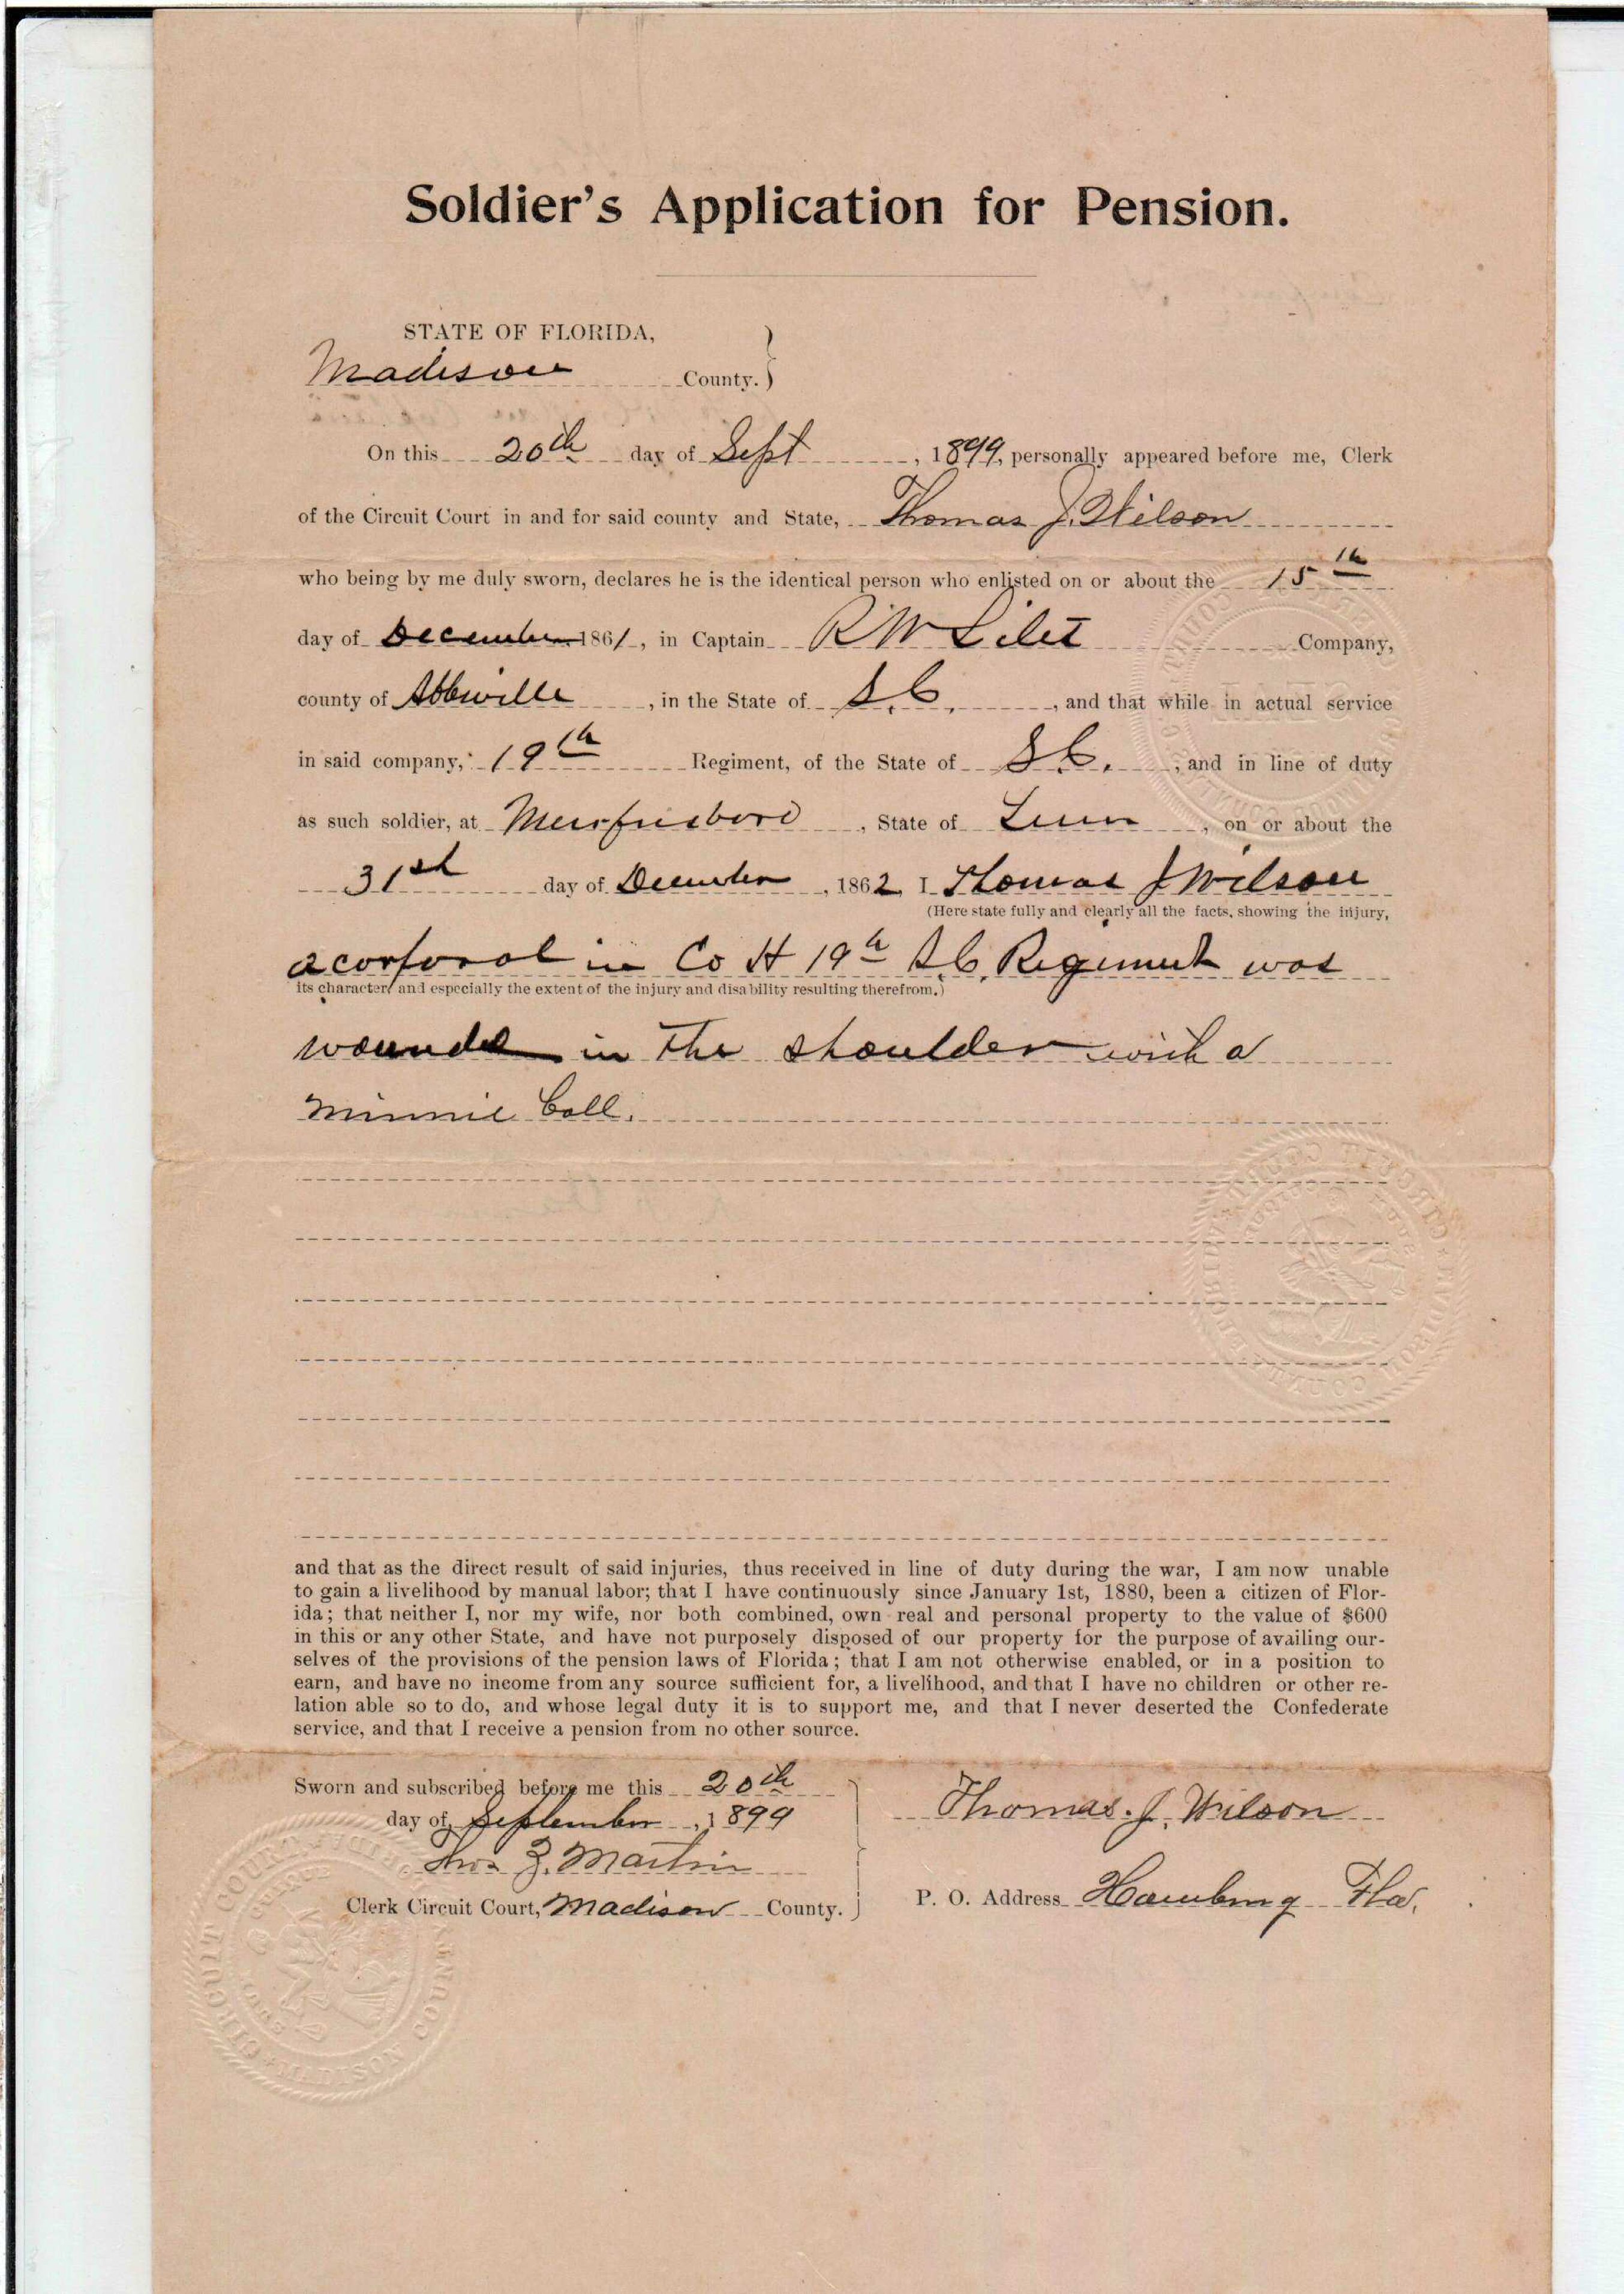 Soldier's Application for Pension.
STATE OF FLORIDA,
Madison County.
On this 20th day of Sept, 1899, personally appeared before me, Clerk
of the Circuit Court in and for said county and State, Thomas J. Wilson
who being by me duly sworn, declares he is the identical person who enlisted on or about the 15th
day of December 1861, in Captain R W Company,
county of Abbeville, in the State of S.C., and that while in actual service
in said company, 19th Regiment, of the State of S.C., and in line of duty
as such soldier, at Murfrisboro, State of Tenn, on or about the
31st day of December, 1862, I Thomas J Wilson
(Here state fully and clearly all the facts, showing the injury,
a corporal in Co H 19th S.C. Regiment was
its character, and especially the extent of the injury and disability resulting therefrom.)
wounded in the shoulder with a
minnie ball.
and that as the direct result of said injuries, thus received in line of duty during the war, I am now unable
to gain a livelihood by manual labor; that I have continuously since January 1st, 1880, been a citizen of Flor-
ida; that neither I, nor my wife, nor both combined, own real and personal property to the value of $600
in this or any other State, and have not purposely disposed of our property for the purpose of availing our-
selves of the provisions of the pension laws of Florida; that I am not otherwise enabled, or in a position to
earn, and have no income from any source sufficient for, a livelihood, and that I have no children or other re-
lation able so to do, and whose legal duty it is to support me, and that I never deserted the Confederate
service, and that I receive a pension from no other source.
Sworn and subscribed before me this 20th
day of September, 1899
Thomas J. Wilson
Martin
Clerk Circuit Court, Madison County.
P. O. Address Hamburg Fla.
CIRCUIT COURT MADISON COUNTY